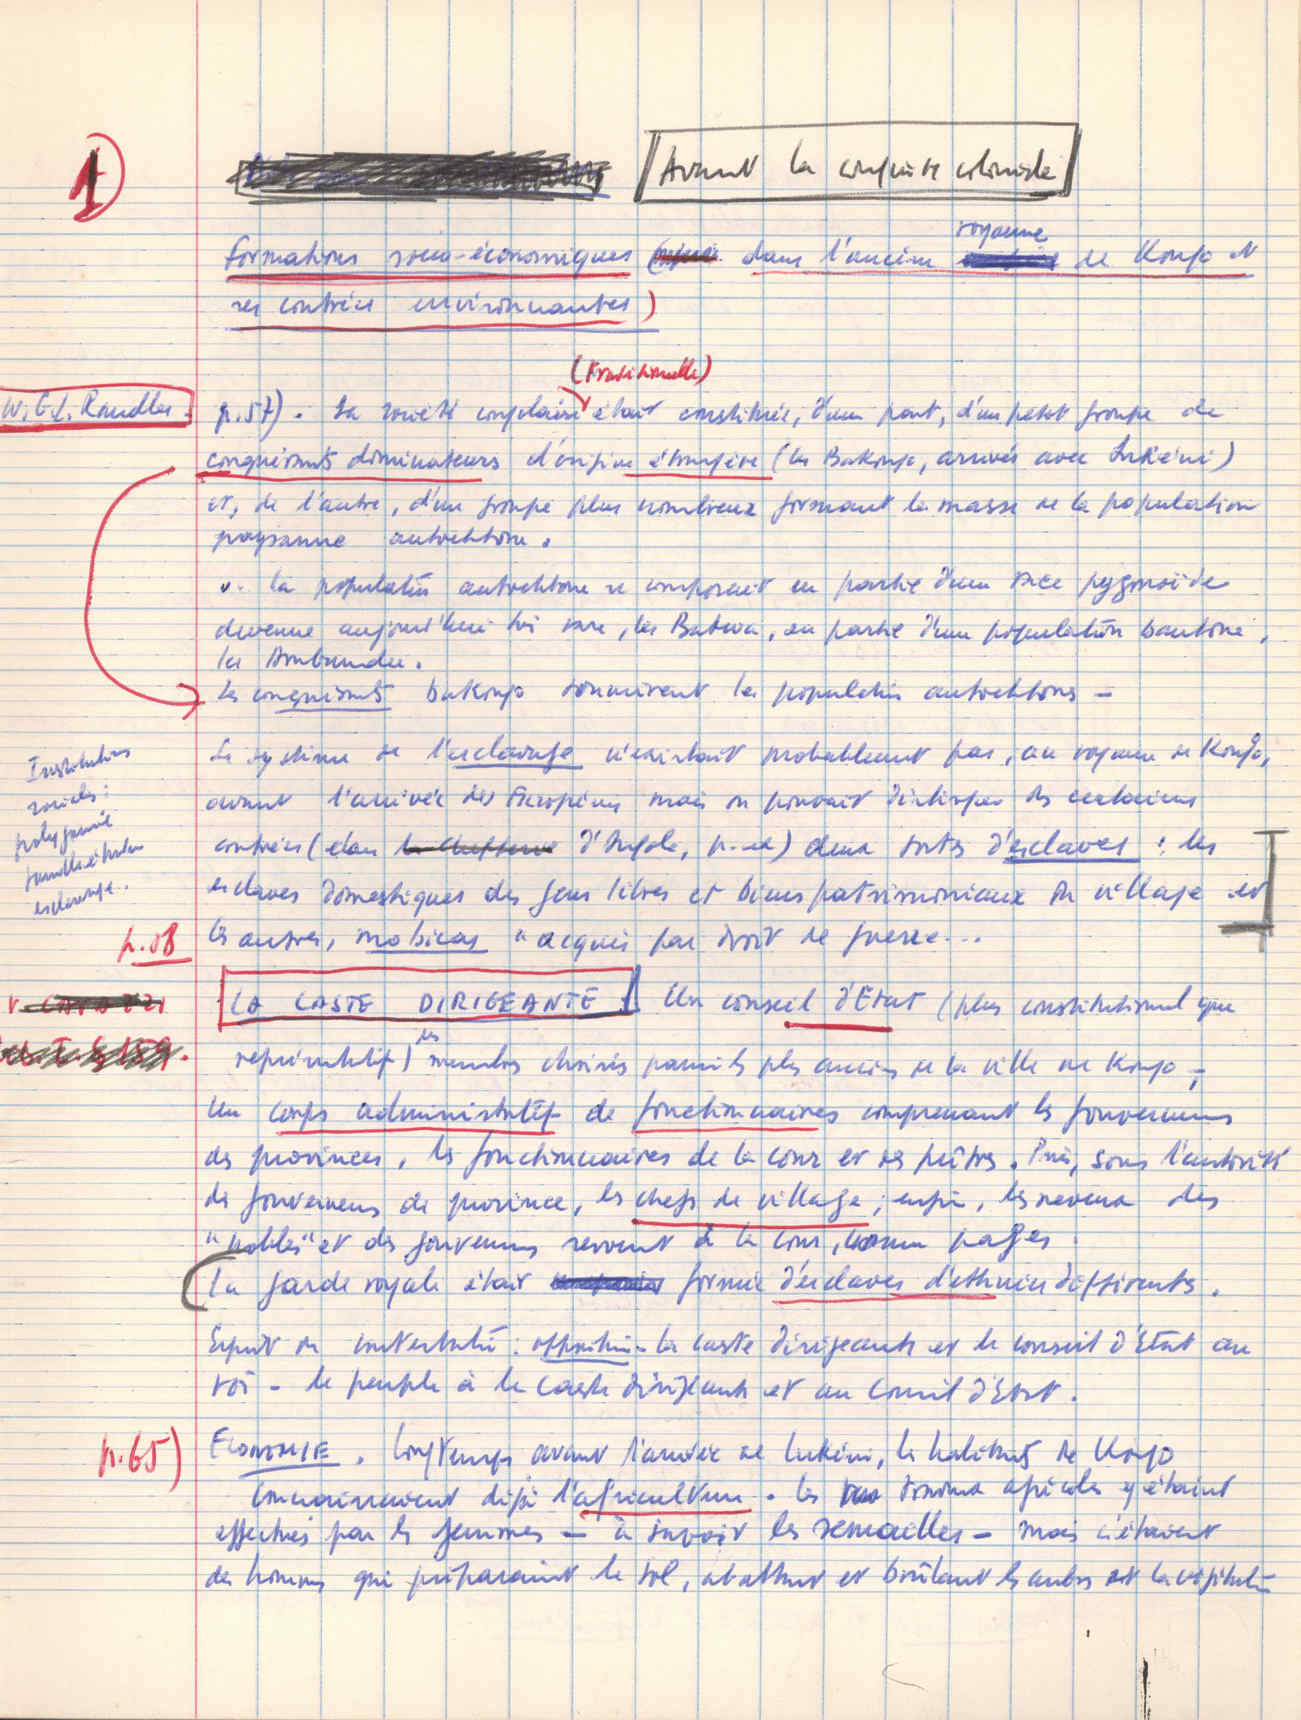 1
Avant la conquête coloniale
royaume
Formations socio-économiques dans l'ancien de Kongo et
ses contrées environnantes)
(traditionnelle)
W.G.L. Randles.
p.57). La société congolaise était constituée, d'une part, d'un petit groupe de
conquérants dominateurs d'origine étrangère (les Bakongo, arrivés avec Lukéni)
et, de l'autre, d'un groupe plus nombreux formant la masse de la population
paysanne autochtone.
La population autochtone se composait en partie d'une race pygmoïde
devenue aujourd'hui très rare, les Batwa, en partie d'une population bantoue,
les Ambundu.
Les conquérants bakongo soumirent les populations autochtones -
Le système de l'esclavage n'existait probablement pas, au royaume de Kongo,
Institutions
sociales :
polygamie
famille étendue
esclavage..
avant l'arrivée des Européens mais on pouvait distinguer des certaines
contrées (dans d'Angola, p. ex) deux sortes d'esclaves : les
esclaves domestiques des gens libres et biens patrimoniaux du village et
p.58
les autres, mobicas "acquis par droit de guerre...
LA CASTE DIRIGEANTE : Un conseil d'Etat (plus constitutionnel que
représentatif) des membres choisis parmi les plus anciens de la ville de Kongo -
Un corps administratif de fonctionnaires comprenant les gouverneurs
des provinces, les fonctionnaires de la cour et ses prêtres. Puis, sous l'autorité
des gouverneurs de province, les chefs de village ; enfin, les neveux des
"nobles" et des gouverneurs servent à la cour, comme pages.
La garde royale était formée d'esclaves d'ethnies différentes.
Esprit de contestation : opposition - la caste dirigeante et le conseil d'Etat au
roi - le peuple à la caste dirigeante et au Conseil d'Etat.
p.65)
ECONOMIE. Longtemps avant l'arrivée de Lukéni, les habitants de Kongo
connaissaient déjà l'agriculture. Les travaux agricoles y étaient
effectués par les femmes - à savoir les semailles - mais c'étaient
des hommes qui préparaient le sol, abattant et brûlant les arbres et la végétation